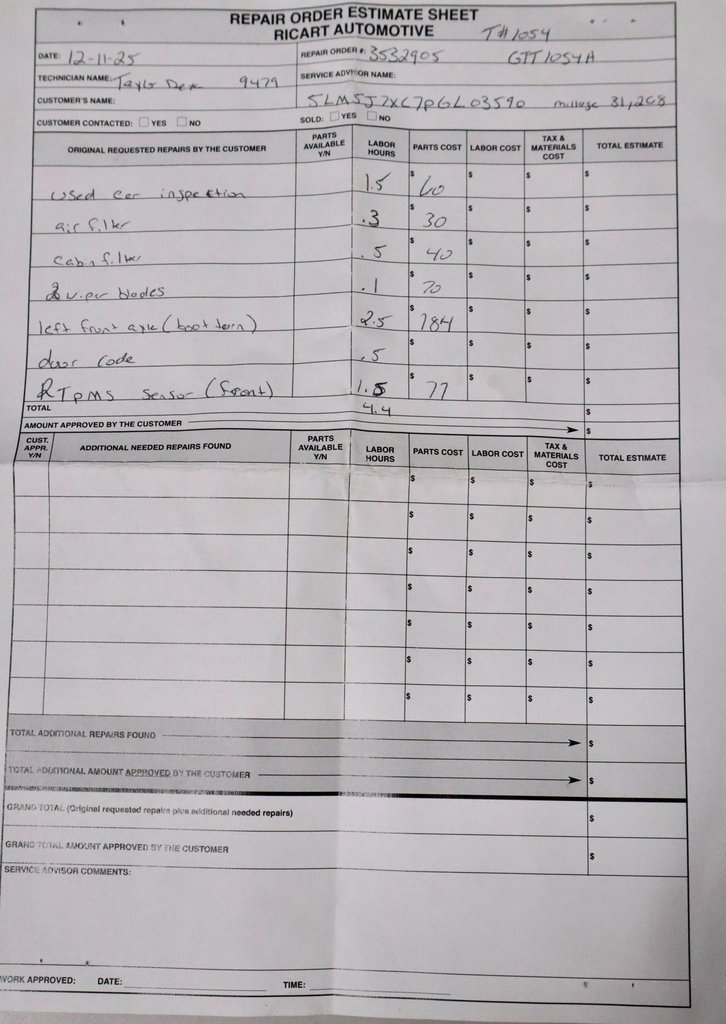 REPAIR ORDER ESTIMATE SHEET
RICART AUTOMOTIVE
T#1054
DATE: 12-11-25
REPAIR ORDER #: 3532905 GTT1054A
TECHNICIAN NAME: Taylor 9479
SERVICE ADVISOR NAME:
CUSTOMER'S NAME:
5LM5J7XC7PGL03590 millage 31,268
CUSTOMER CONTACTED: YES NO
SOLD: YES NO
ORIGINAL REQUESTED REPAIRS BY THE CUSTOMER PARTS AVAILABLE Y/N LABOR HOURS PARTS COST LABOR COST TAX & MATERIALS COST TOTAL ESTIMATE
used car inspection 1.5 $ 60 $ $ $
air filter .3 $ 30 $ $ $
cabin filter .5 $ 40 $ $ $
2 wiper blades .1 $ 70 $ $ $
left front axle (boot torn) 2.5 $ 784 $ $ $
door code .5 $ $ $ $
R TPMS sensor (front) 1.5 $ 77 $ $ $
TOTAL 4.4 $
AMOUNT APPROVED BY THE CUSTOMER $
CUST. APPR. Y/N ADDITIONAL NEEDED REPAIRS FOUND PARTS AVAILABLE Y/N LABOR HOURS PARTS COST LABOR COST TAX & MATERIALS COST TOTAL ESTIMATE
$ $ $ $
$ $ $ $
$ $ $ $
$ $ $ $
$ $ $ $
$ $ $ $
$ $ $ $
TOTAL ADDITIONAL REPAIRS FOUND $
TOTAL ADDITIONAL AMOUNT APPROVED BY THE CUSTOMER $
GRAND TOTAL (Original requested repairs plus additional needed repairs) $
GRAND TOTAL AMOUNT APPROVED BY THE CUSTOMER $
SERVICE ADVISOR COMMENTS:
WORK APPROVED: DATE: TIME: